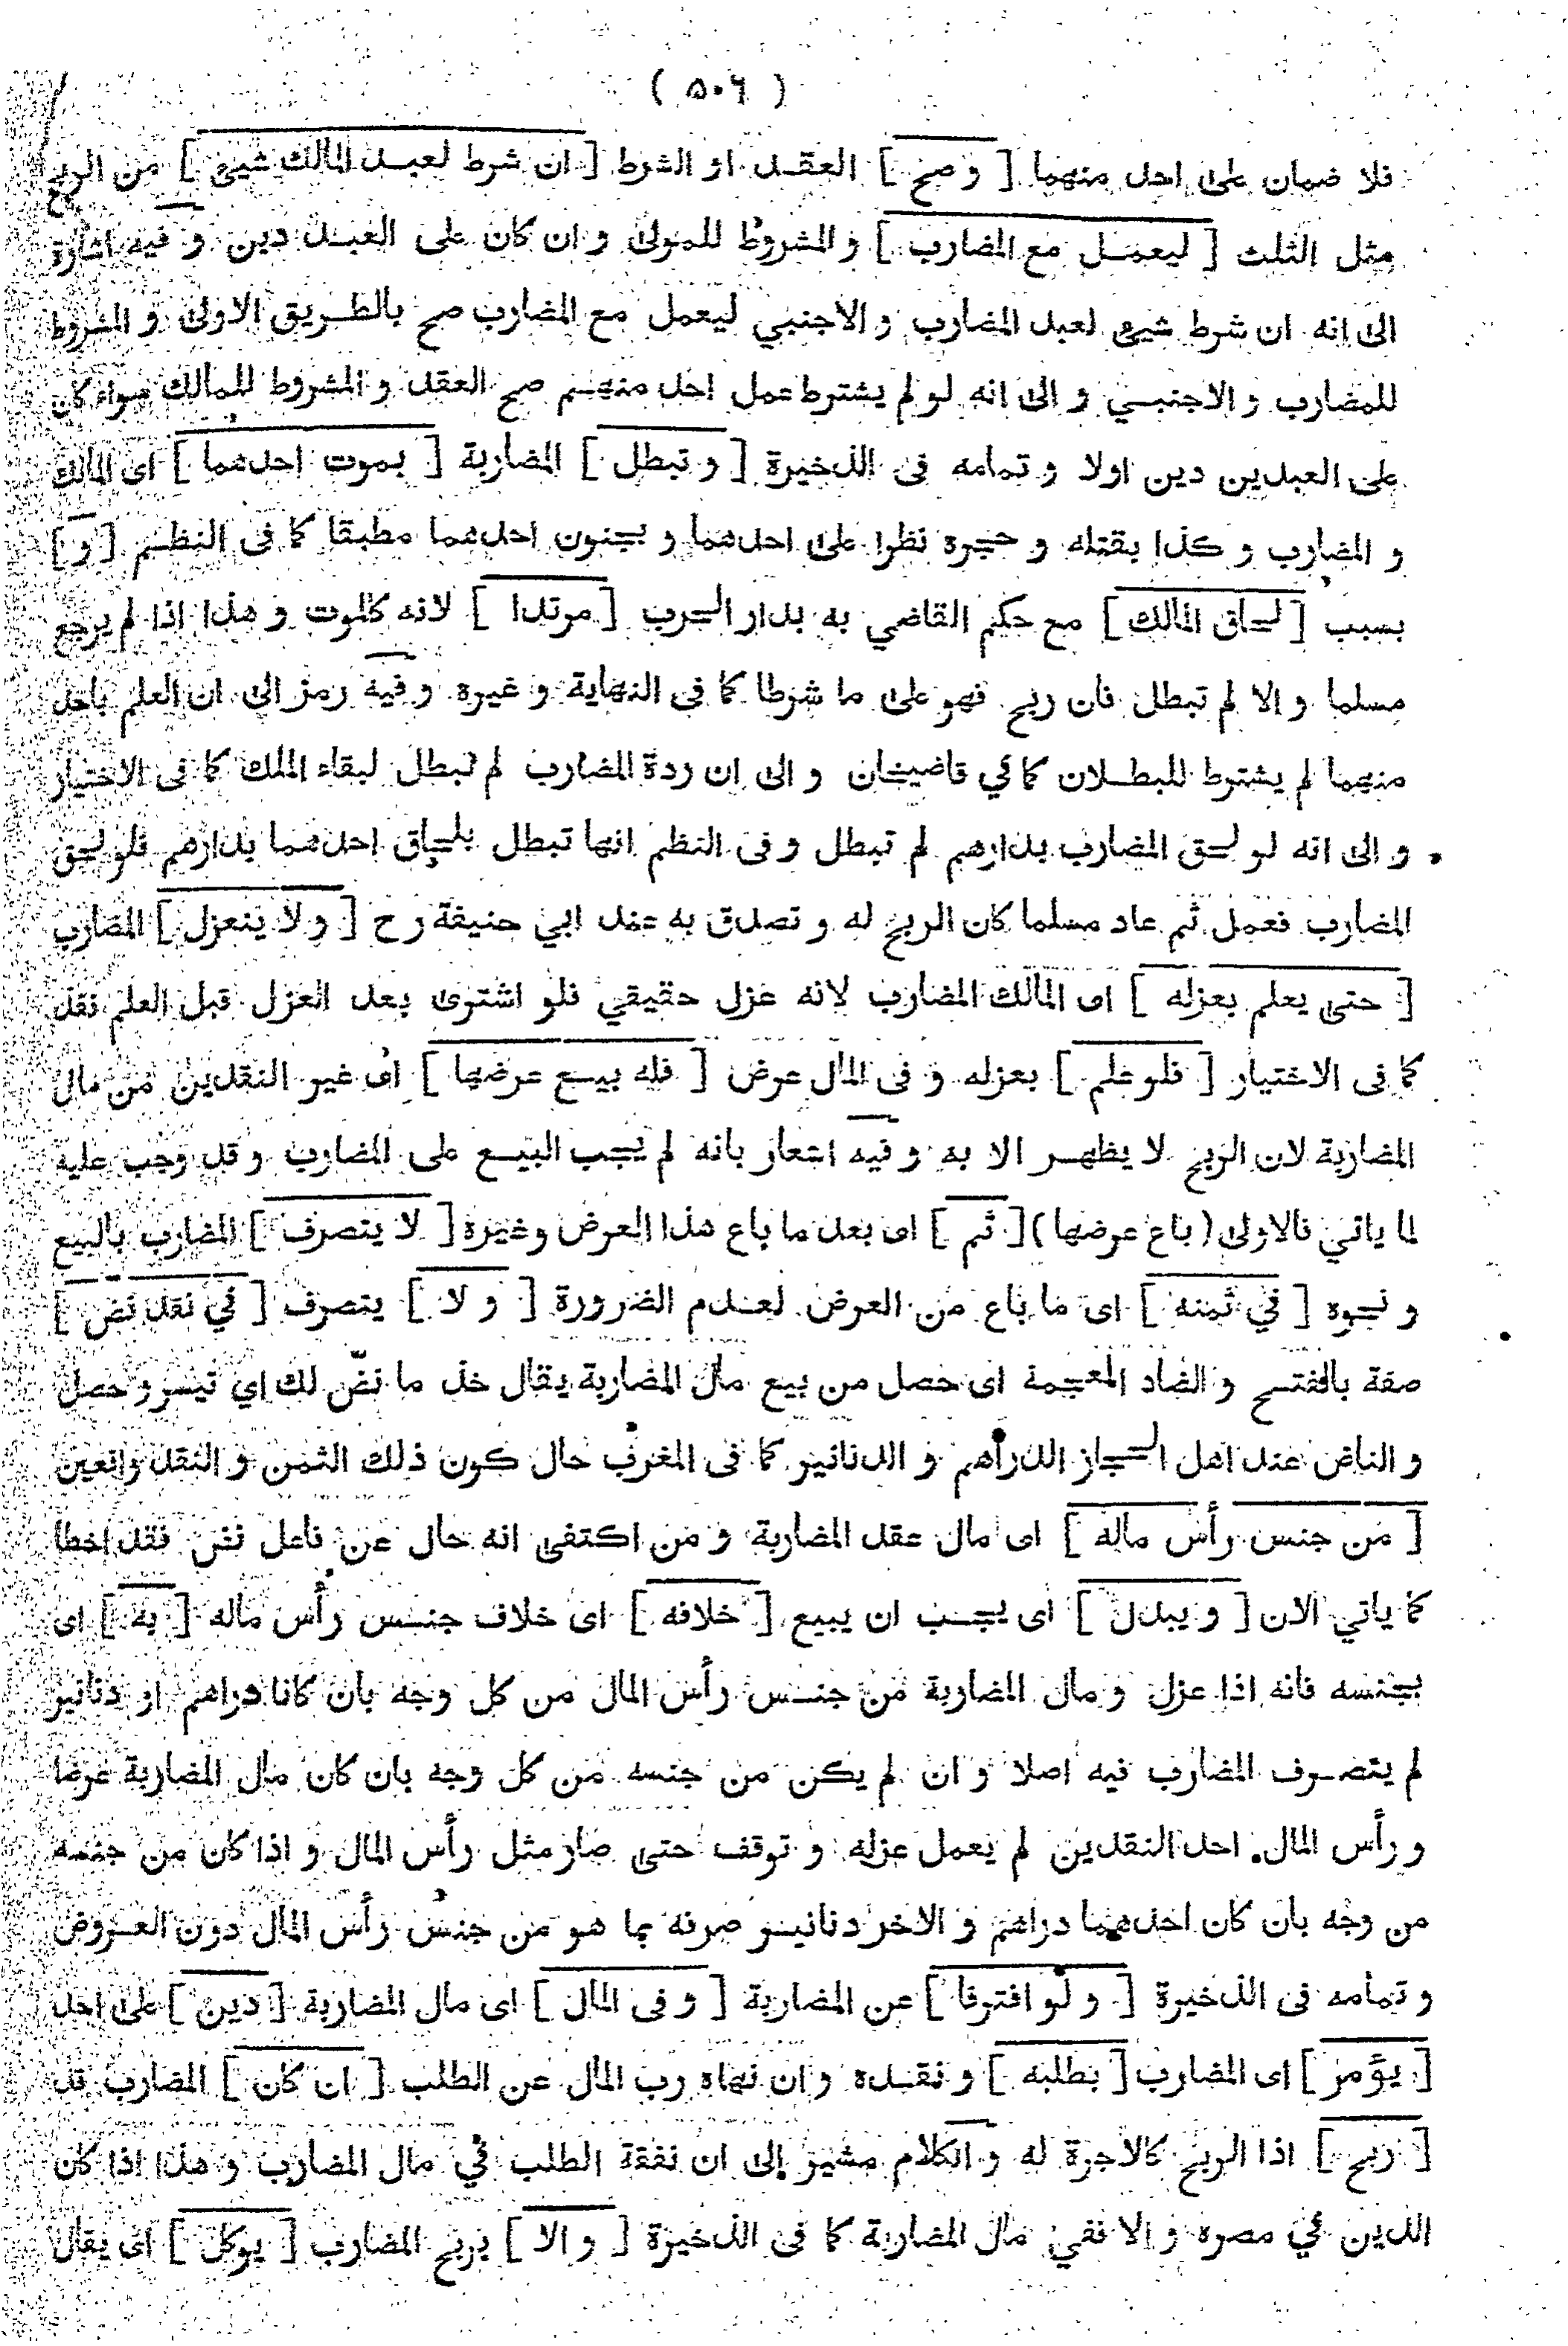 ( ٥٠٦ )
فلا ضمان على احد منهما [ و صح ] العقد او الشرط [ ان شرط لعبد المالك شيئ ] من الربح
مثل الثلث [ ليعمل مع المضارب ] و المشروط للمولى و ان كان على العبد دين و فيه اشارة
الى انه ان شرط شيئ لعبد المضارب و الاجنبي ليعمل مع المضارب صح بالطريق الاولى و المشروط
للمضارب و الاجنبي و الى انه لو لم يشترط عمل احد منهم صح العقد و المشروط للمالك سواء كان
على العبدين دين اولا و تمامه فى الذخيرة [ و تبطل ] المضاربة [ بموت احدهما ] اى المالك
و المضارب و كذا بقتله و حجره نظرا على احدهما و بجنون احدهما مطبقا كما فى النظم [ و ]
بسبب [ لحاق المالك ] مع حكم القاضي به بدار الحرب [ مرتدا ] لانه كالموت و هذا اذا لم يرجع
مسلما و الا لم تبطل فان ربح فهو على ما شرطا كما فى النهاية و غيره و فيه رمز الى ان العلم باحد
منهما لم يشترط للبطلان كما في قاضيخان و الى ان ردة المضارب لم تبطل لبقاء الملك كما فى الاختيار
و الى انه لو لحق المضارب بدارهم لم تبطل و فى النظم انها تبطل بلحاق احدهما بدارهم فلو لحق
المضارب فعمل ثم عاد مسلما كان الربح له و تصدق به عند ابي حنيفة رح [ و لا ينعزل ] المضارب
[ حتى يعلم بعزله ] اى المالك المضارب لانه عزل حقيقي فلو اشترى بعد العزل قبل العلم نفذ
كما فى الاختيار [ فلو علم ] بعزله و فى المال عرض [ فله بيع عرضها ] اى غير النقدين من مال
المضاربة لان الربح لا يظهر الا به و فيه اشعار بانه لم يجب البيع على المضارب و قد وجب عليه
لما ياتي فالاولى ( باع عرضها ) [ ثم ] اى بعد ما باع هذا العرض و غيره [ لا يتصرف ] المضارب بالبيع
و نحوه [ في ثمنه ] اى ما باع من العرض لعدم الضرورة [ و لا ] يتصرف [ في نقد نض ]
صفة بالفتح و الضاد المعجمة اى حصل من بيع مال المضاربة يقال خذ ما نضّ لك اي تيسر و حصل
و الناض عند اهل الحجاز الدراهم و الدنانير كما فى المغرب حال كون ذلك الثمن و النقد واقعين
[ من جنس رأس ماله ] اى مال عقد المضاربة و من اكتفى انه حال عن فاعل نض فقد اخطا
كما ياتي الان [ و يبدل ] اى يجب ان يبيع [ خلافه ] اى خلاف جنس رأس ماله [ به ] اى
بجنسه فانه اذا عزل و مال المضاربة من جنس رأس المال من كل وجه بان كانا دراهم او دنانير
لم يتصرف المضارب فيه اصلا و ان لم يكن من جنسه من كل وجه بان كان مال المضاربة عرضا
و رأس المال احد النقدين لم يعمل عزله و توقف حتى صار مثل رأس المال و اذا كان من جنسه
من وجه بان كان احدهما دراهم و الاخر دنانير صرفه بما هو من جنس رأس المال دون العروض
و تمامه فى الذخيرة [ و لو افترقا ] عن المضاربة [ و فى المال ] اى مال المضاربة [ دين ] على احد
[ يؤمر ] اى المضارب [ بطلبه ] و نقده و ان نهاه رب المال عن الطلب [ ان كان ] المضارب قد
[ ربح ] اذا الربح كالاجرة له و الكلام مشير الى ان نفقة الطلب في مال المضارب و هذا اذا كان
الدين في مصره و الا ففي مال المضاربة كما فى الذخيرة [ و الا ] يربح المضارب [ يوكل ] اى يقال